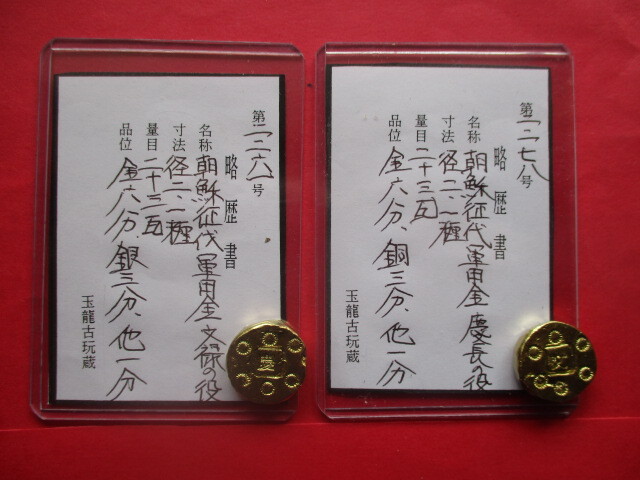 第一二六八号
略歴書
名称 朝鮮征伐軍用金 文禄の役
寸法 径二、一糎
量目 二十三瓦
品位 金六分、銀三分、他一分
玉龍古玩蔵
慶
第一二七八号
略歴書
名称 朝鮮征伐軍用金 慶長の役
寸法 径二、一糎
量目 二十三瓦
品位 金六分、銅三分、他一分
玉龍古玩蔵